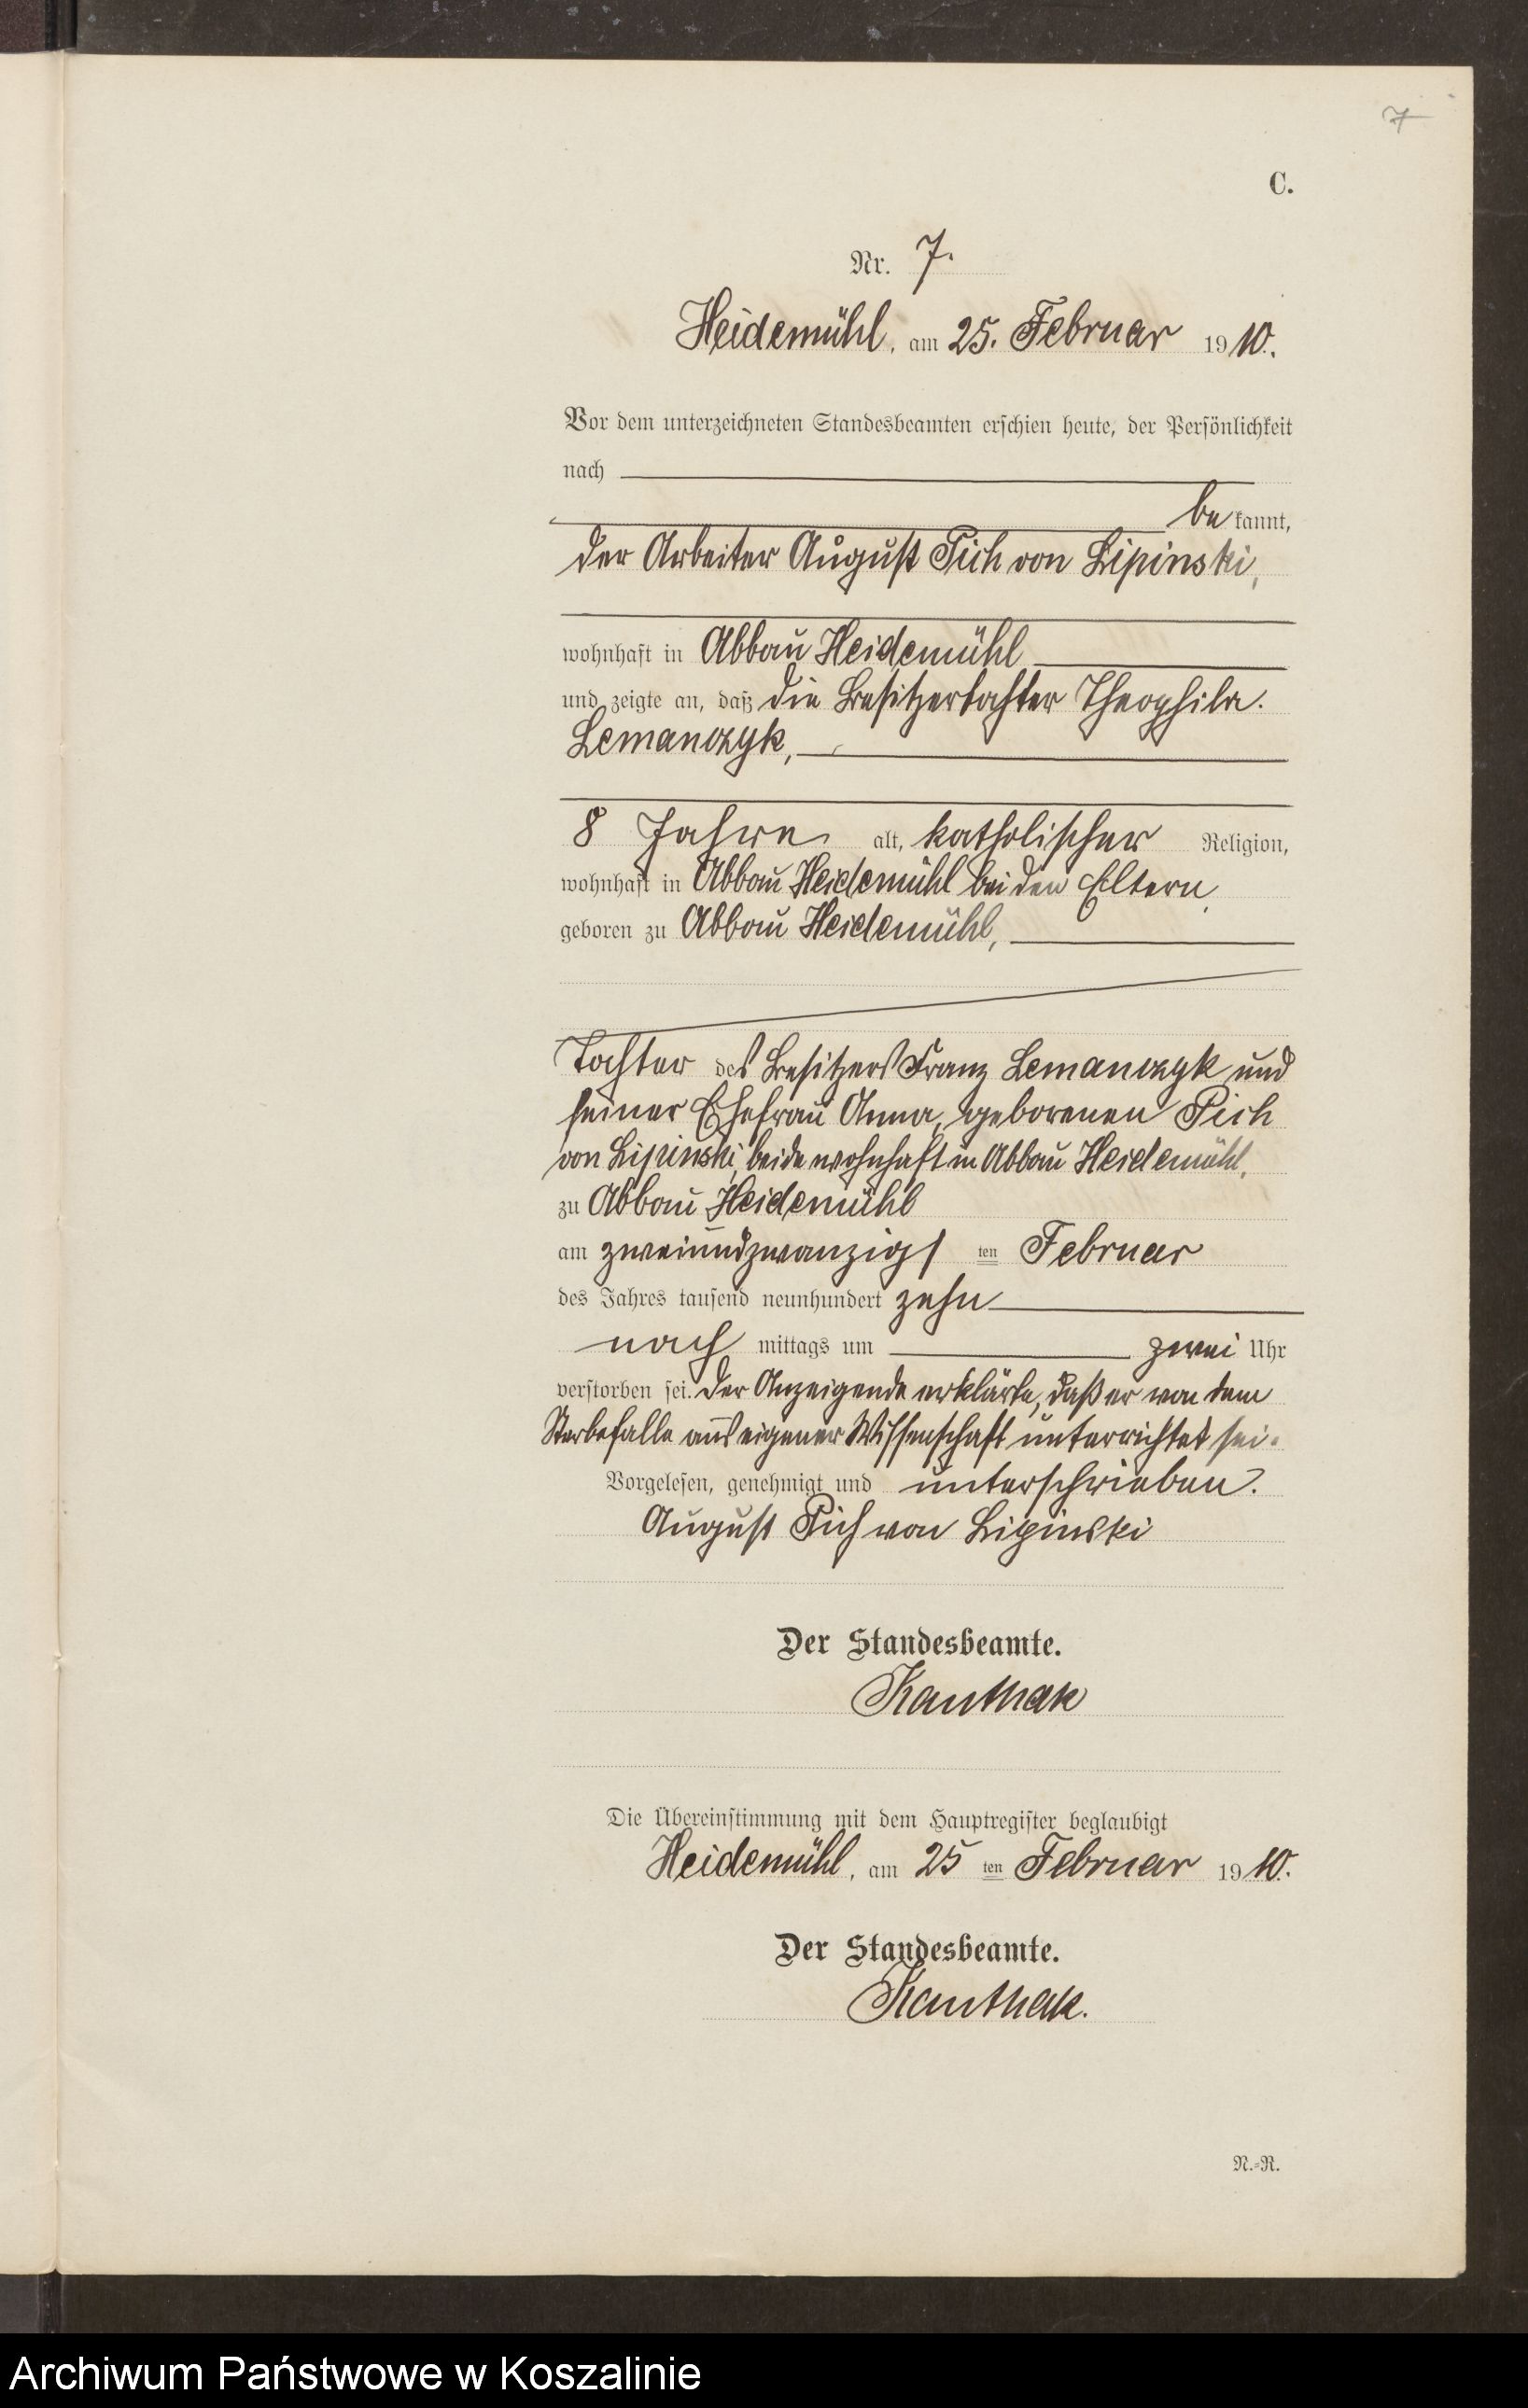 7
C.
Nr. 7.
Heidemühl, am 25. Februar 1910.
Vor dem unterzeichneten Standesbeamten erschien heute, der Persönlichkeit
nach
bekannt,
der Arbeiter August Pich von Lipinski,
wohnhaft in Abbau Heidemühl
und zeigte an, daß die Besitzertochter Theophila
Lemanczyk,
8 Jahre alt, katholischer Religion,
wohnhaft in Abbau Heidemühl bei den Eltern,
geboren zu Abbau Heidemühl,
Tochter des Besitzers Franz Lemanczyk und
seiner Ehefrau Anna, geborenen Pich
von Lipinski, beide wohnhaft in Abbau Heidemühl,
zu Abbau Heidemühl
am zweiundzwanzigsten Februar
des Jahres tausend neunhundert zehn
nach mittags um zwei Uhr
verstorben sei. Der Anzeigende erklärte, daß er von dem
Sterbefalle aus eigener Wissenschaft unterrichtet sei.
Vorgelesen, genehmigt und unterschrieben.
August Pich von Lipinski
Der Standesbeamte.
Kanthak
Die Übereinstimmung mit dem Hauptregister beglaubigt
Heidemühl, am 25 ten Februar 1910.
Der Standesbeamte.
Kanthak.
N.-R.
Archiwum Państwowe w Koszalinie